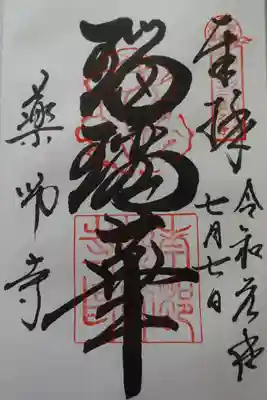 奉拝
令和
七月七日
瑠璃華
藥師寺